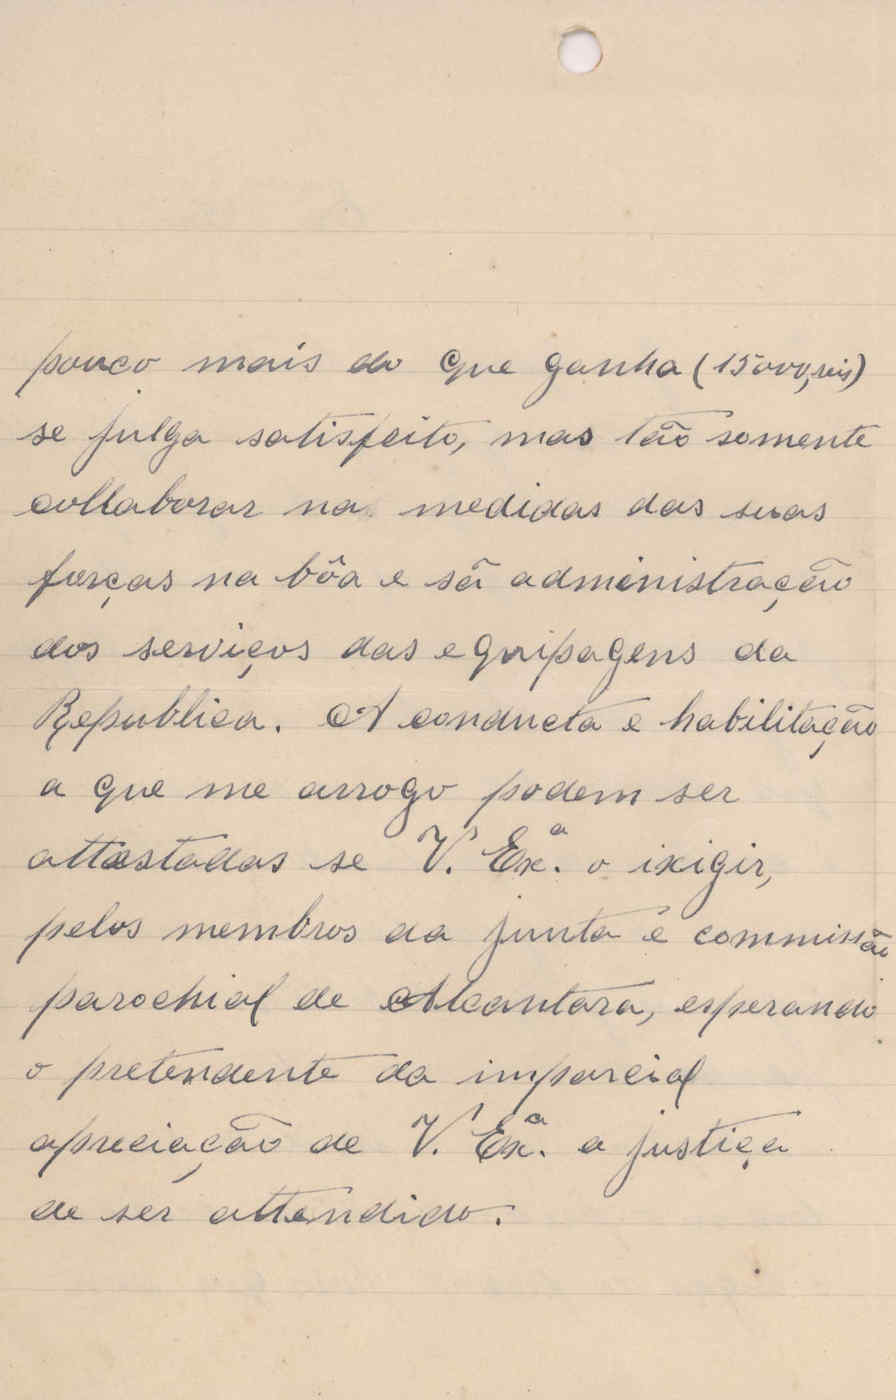 pouco mais do que ganha (15000, reis)
se julga satisfeito, mas tão somente
collaborar na medidas das suas
forças na bôa e sã administração
dos serviços das equipagens da
Republica. A conducta e habilitação
a que me arrogo podem ser
attestadas se V. Exª. o ixigir,
pelos membros da junta e commissão
parochial de Alcantara, esperando
o pretendente da imparcial
apreciação de V. Exª. a justiça
de ser attendido.